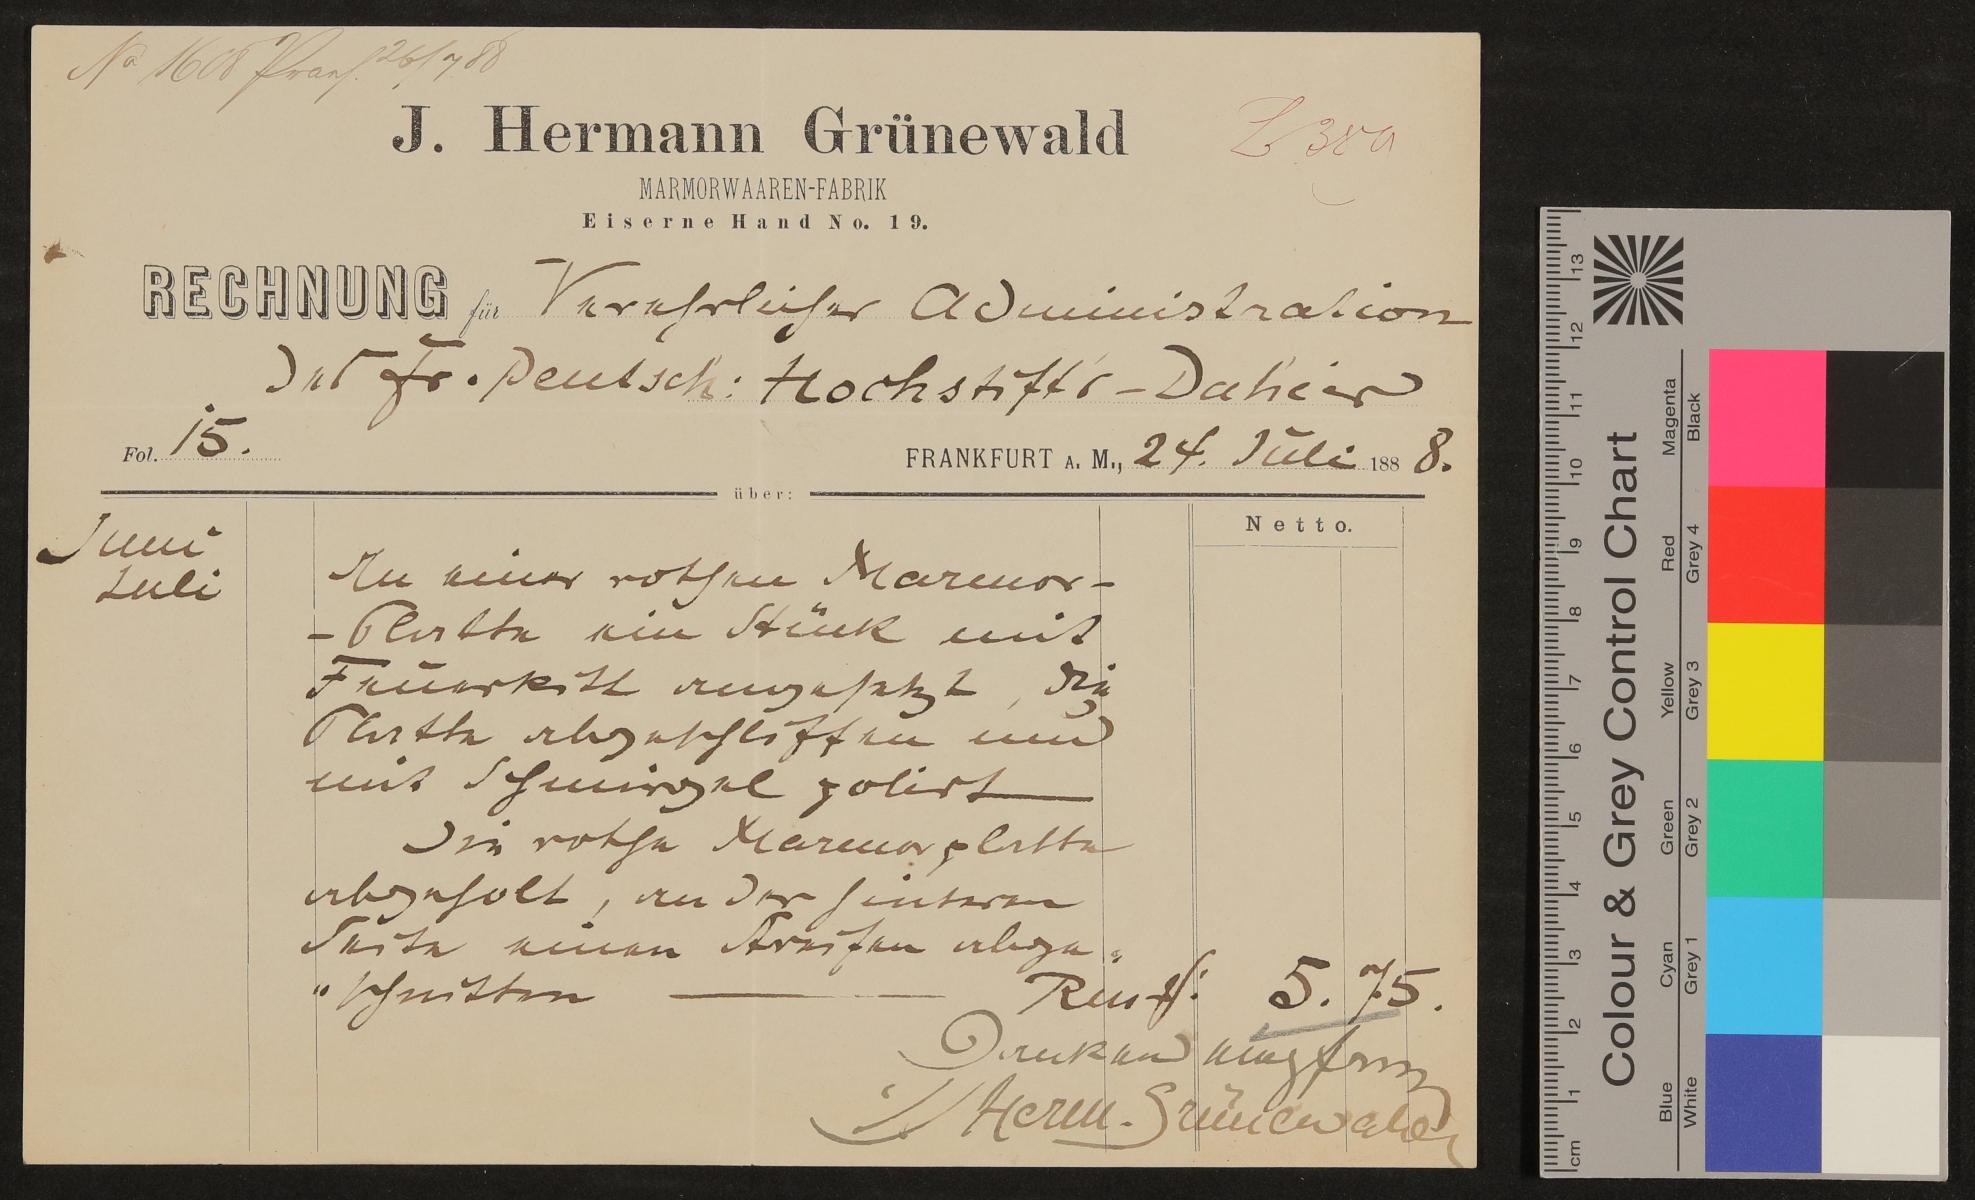 No 1608 Pran. 26/7 88
J. Hermann Grünewald
L 380
MARMORWAAREN-FABRIK
Eiserne Hand No. 19.
RECHNUNG für Verehrlicher Administration
des Fr. Deutsch: Hochstift's - Dahier
Fol. 15.
FRANKFURT A. M., 24. Juli 1888.
über:
Netto.
Juni
Juli
An einer rothen Marmor-
- Platte ein Stück mit
Feuerkitt angesetzt, die
Platte abgeschliffen und
mit Schmirgel polirt
Die rothe Marmorplatte
abgeholt, an der hinteren
Seite einen Streifen abge„
„schnitten 5.75.
Dankend empfang
J Herm. Grünewald
Colour & Grey Control Chart
Blue Cyan Green Yellow Red Magenta
White Grey 1 Grey 2 Grey 3 Grey 4 Black
cm 1 2 3 4 5 6 7 8 9 10 11 12 13